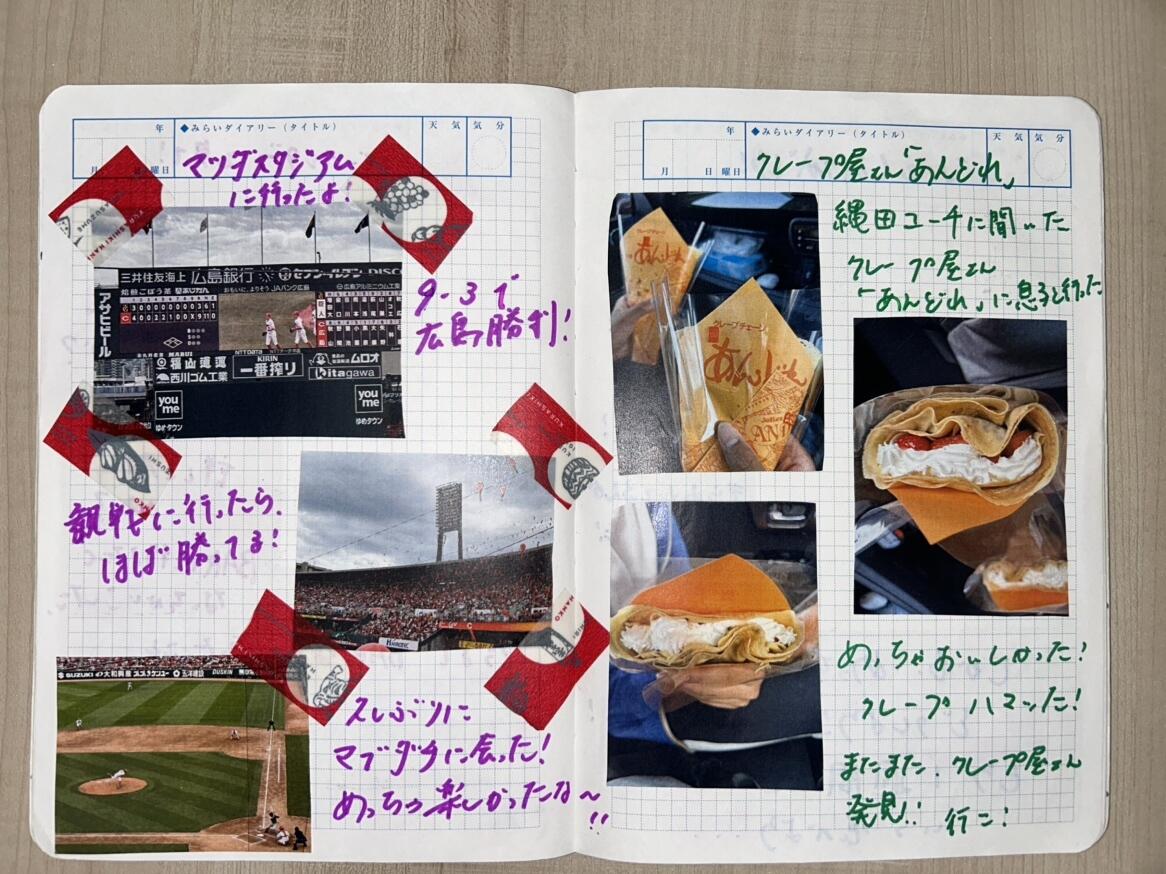 年
◆みらいダイアリー（タイトル）
天 気
気 分
月 日 曜日
マツダスタジアム
に行ったよ！
三井住友海上 広島銀行
おもいに、よりそう JAバンク広島
アサヒビール
1 2 3 4 5 6 7 8 9
福山通運
西川ゴム工業
NTT DATA
KIRIN
一番搾り
ムロオ
Kitagawa
you me
ゆめタウン
you me
ゆめタウン
9-3で
広島勝利！
観戦に行ったら、
ほぼ勝ってる！
SUZUKI
大和興産
DUSKIN
久しぶりに
マブダチに会った！
めっちゃ楽しかったな〜
!!
年
◆みらいダイアリー（タイトル）
天 気
気 分
月 日 曜日
クレープ屋さん「あんどれ」
縄田コーチに聞いた
クレープ屋さん
「あんどれ」に息子と行った
クレープチェーン
あんどれ
めっちゃおいしかった！
クレープハマった！
またまた、クレープ屋さん
発見！ 行こ！